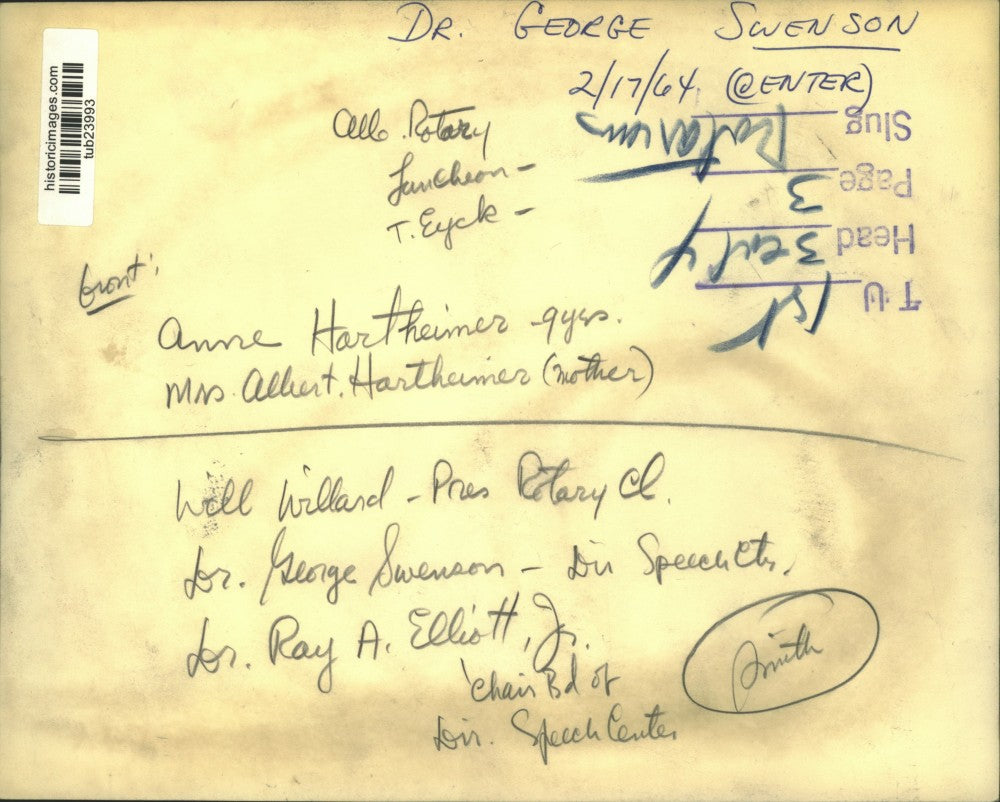 DR. GEORGE SWENSON
2/17/64. (@ENTER)
historicimages.com
tub23993
Alb. Rotary
Luncheon -
T. Eyck -
Slug Rotarians
Page 3
Head 3 col
T-U 1st
front:
Anne Hartheimer - 9yrs.
Mrs. Albert. Hartheimer (mother)
Will Willard - Pres Rotary Cl.
Dr. George Swenson - Dir Speech Ctr.
Dr. Ray A. Elliott, Jr.
Chair Bd of
Dir. Speech Center
Smith